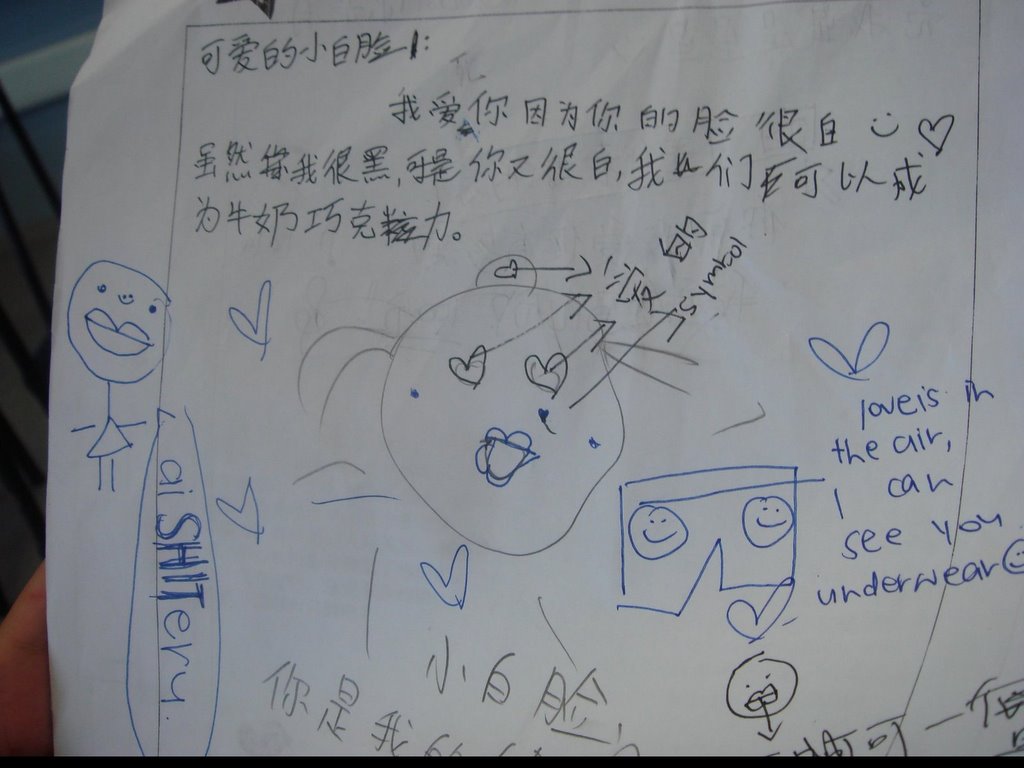 可爱的小白脸1:
我爱你因为你的脸很白
虽然我很黑,可是你又很白,我们可以成
为牛奶巧克粒力。
爱的
symbol
love is in
the air,
I can
see you
underwear
aiSHITeru.
小白脸,
你是
我的
一个